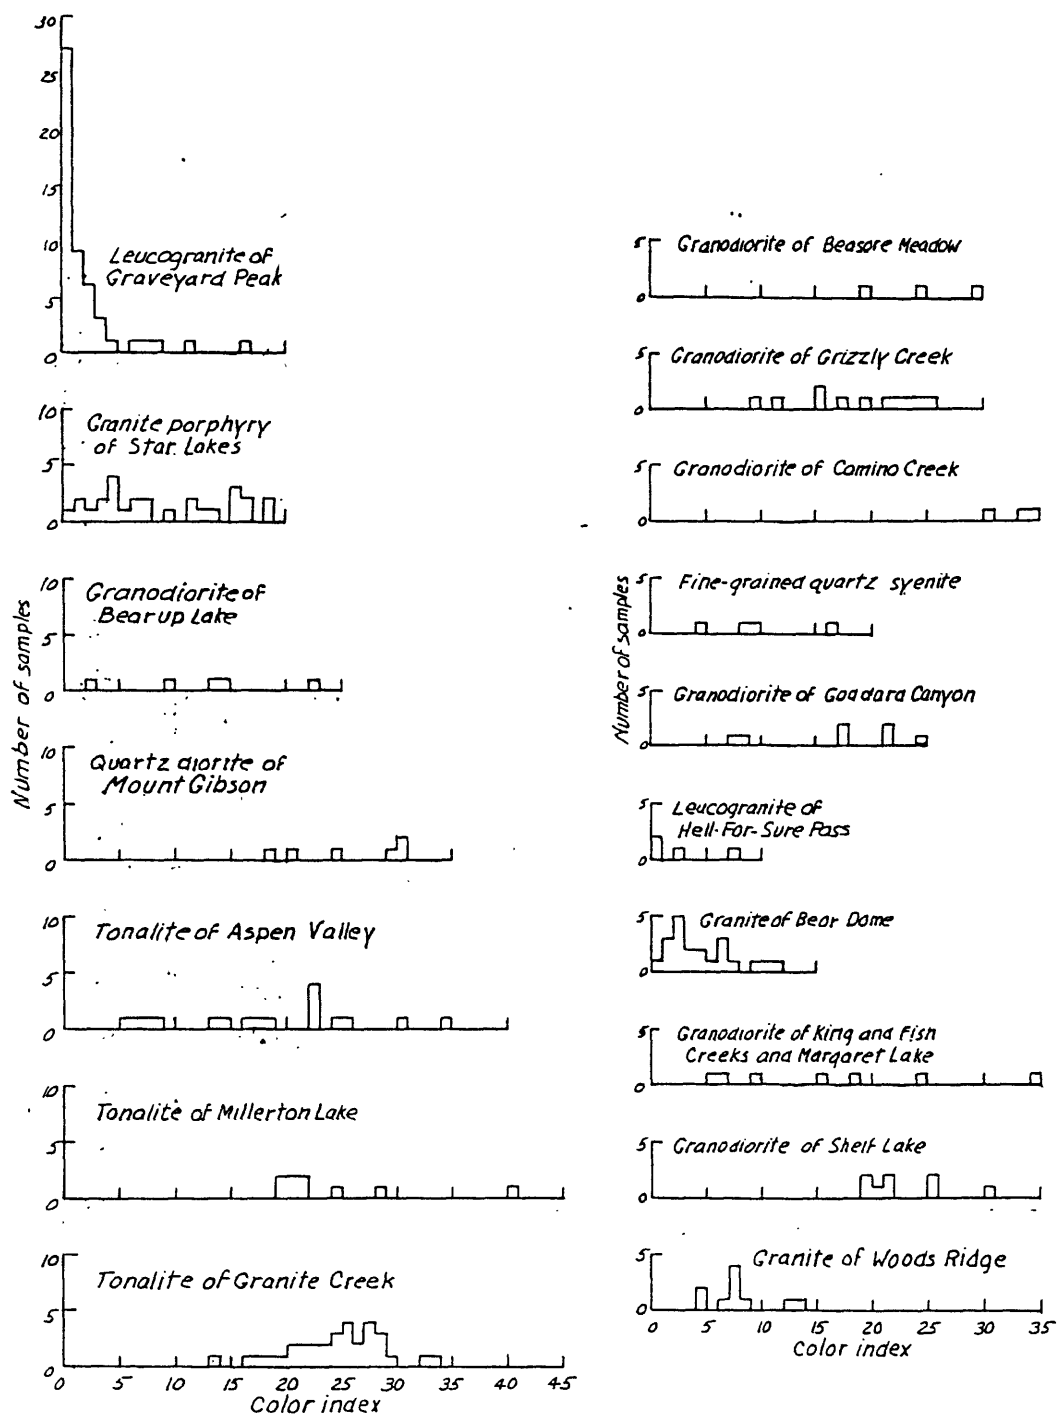 30
25
20
15
10
5
0
Leucogranite of
Graveyard Peak
10
5
0
Granite porphyry
of Star Lakes
10
5
0
Granodiorite of
Bearup Lake
10
5
0
Quartz diorite of
Mount Gibson
10
5
0
Tonalite of Aspen Valley
10
5
0
Tonalite of Millerton Lake
10
5
0
Tonalite of Granite Creek
0 5 10 15 20 25 30 35 40 45
Color index
Number of samples
5
0
Granodiorite of Beasore Meadow
5
0
Granodiorite of Grizzly Creek
5
0
Granodiorite of Camino Creek
5
0
Fine-grained quartz syenite
5
0
Granodiorite of Goddard Canyon
5
0
Leucogranite of
Hell-For-Sure Pass
5
0
Granite of Bear Dome
5
0
Granodiorite of King and Fish
Creeks and Margaret Lake
5
0
Granodiorite of Shelf Lake
5
0
Granite of Woods Ridge
0 5 10 15 20 25 30 35
Color index
Number of samples